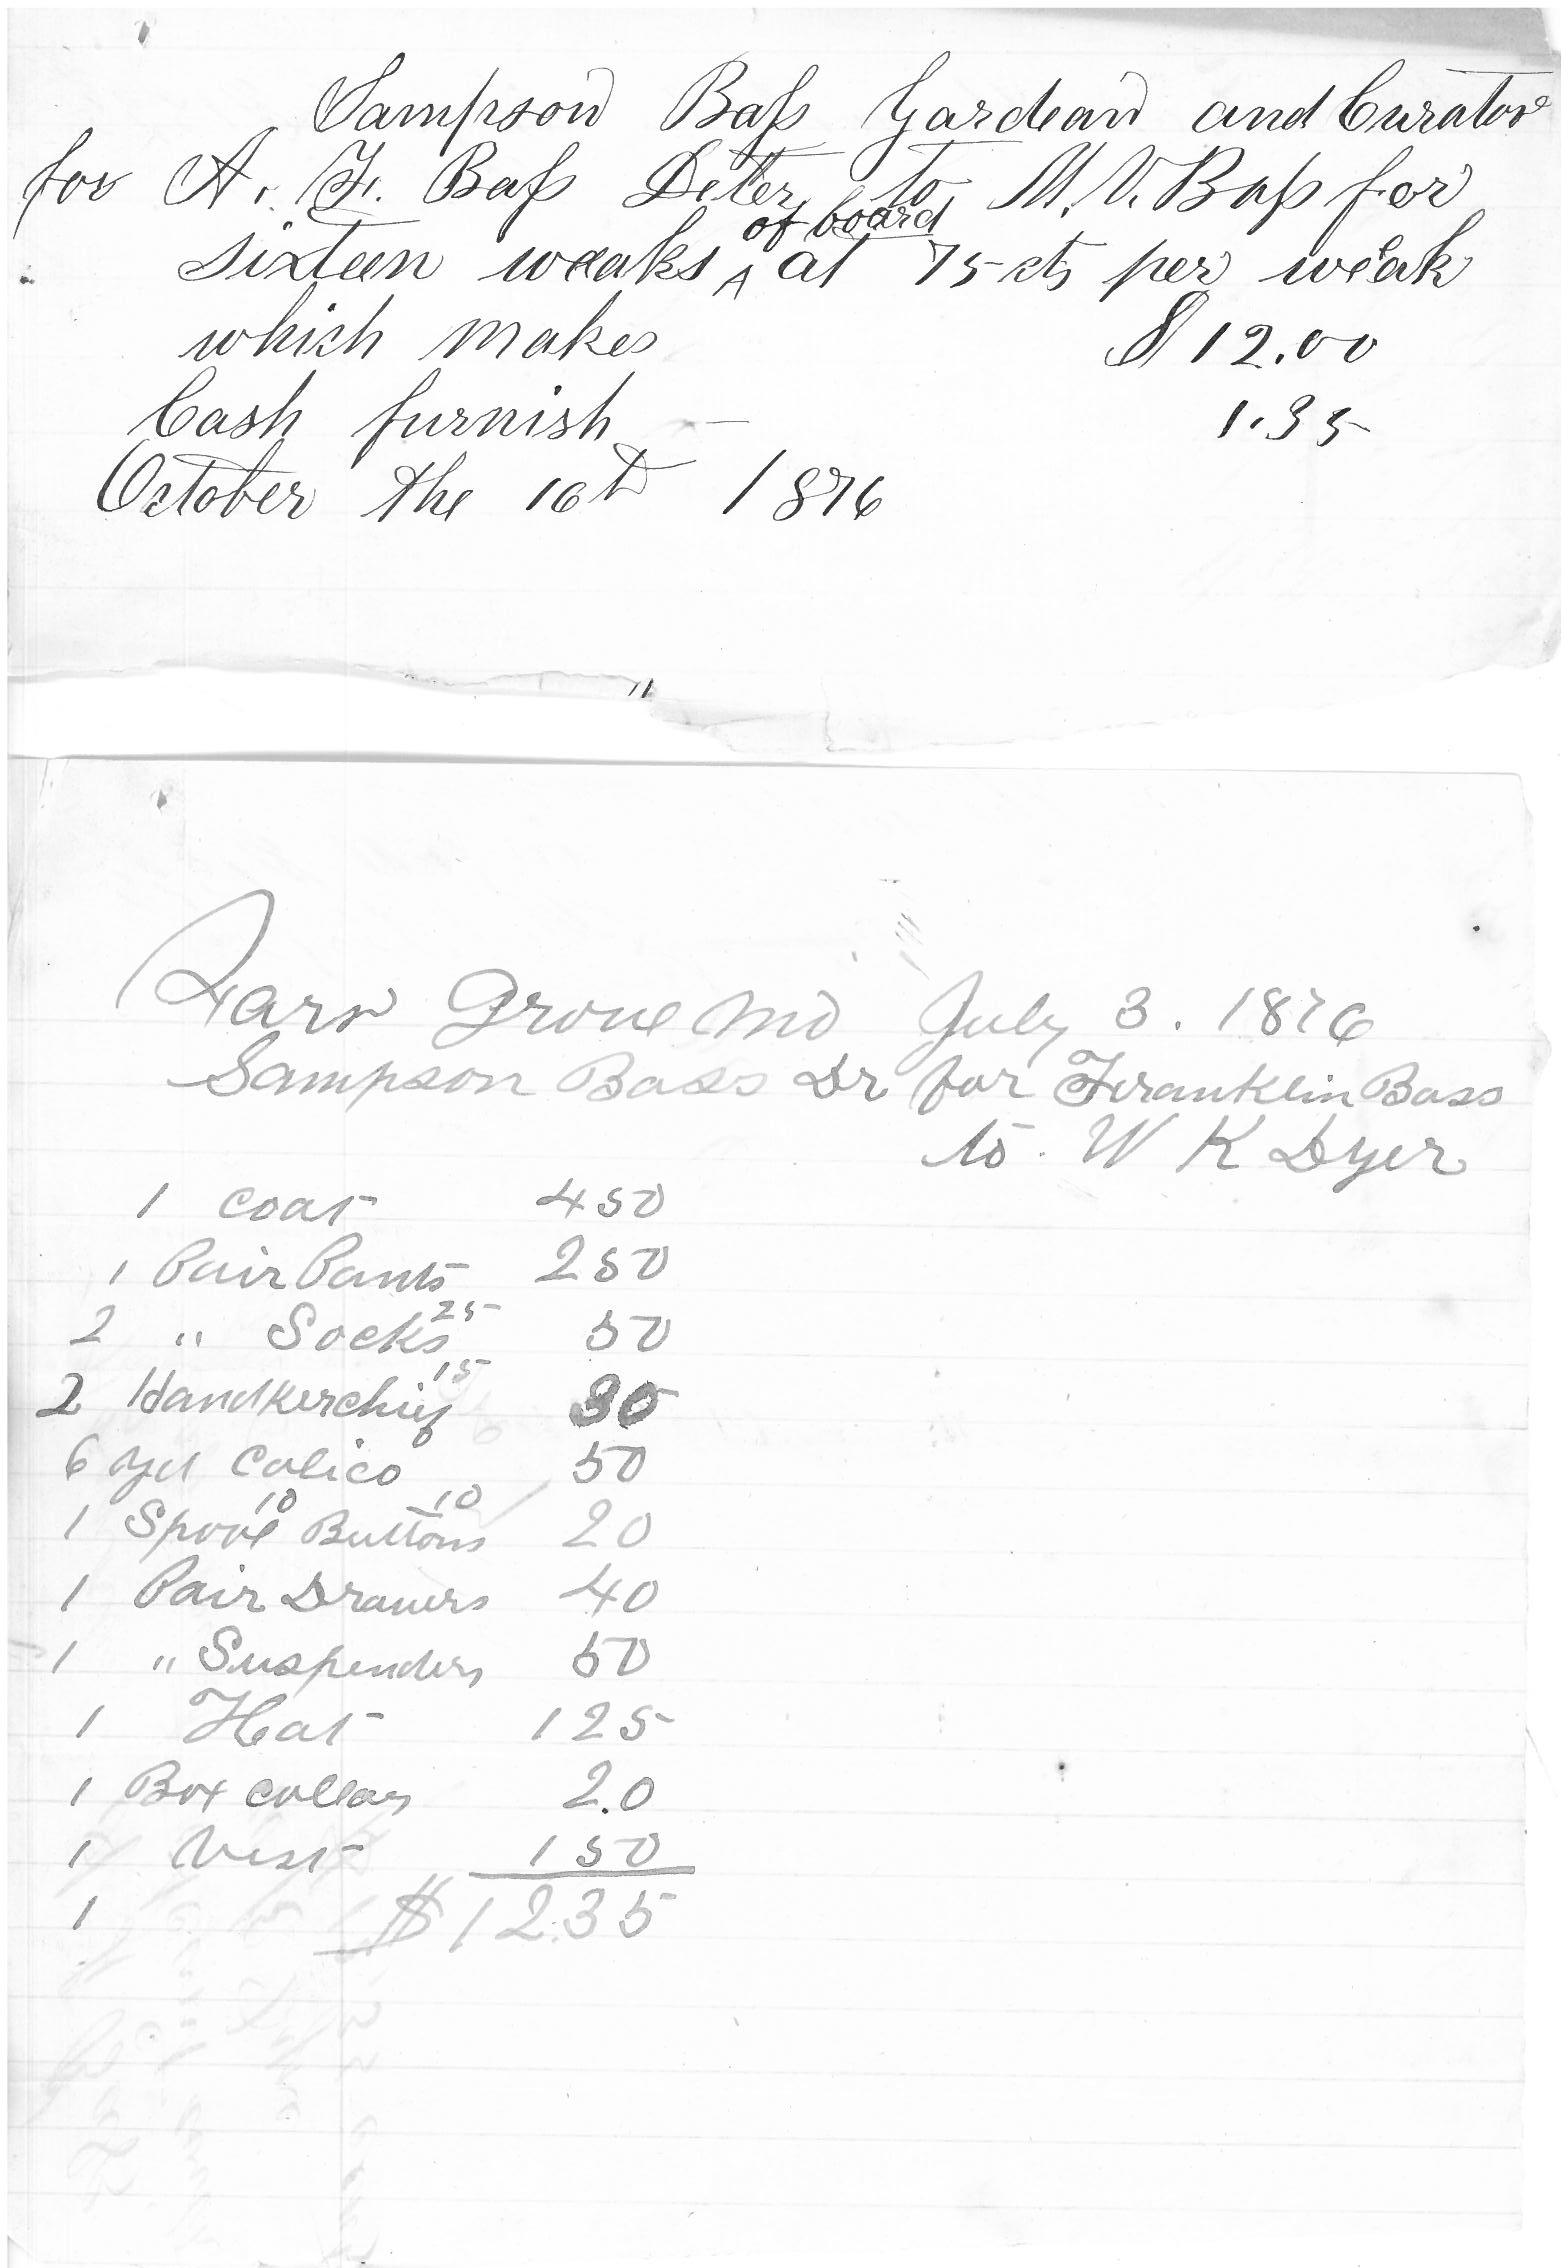 Sampson Bass Gardean and Curator
for A. F. Bass Deter to M. V. Bass for
sixteen weaks of board at 75 cts per weak
which makes $12.00
Cash furnish 1.35
October the 16th 1876
Grove Mo July 3. 1876
Sampson Bass Dr for Franklin Bass
to W K Dyer
1 Coat 450
1 Pair Pants 250
2 " Socks 25 50
2 Handkerchief 15 30
6 yd Calico 50
1 Spool 10 Buttons 10 20
1 Pair Drawers 40
1 " Suspenders 50
1 Hat 125
1 Box Collars 2.0
1 Vest 150
1 $12.35